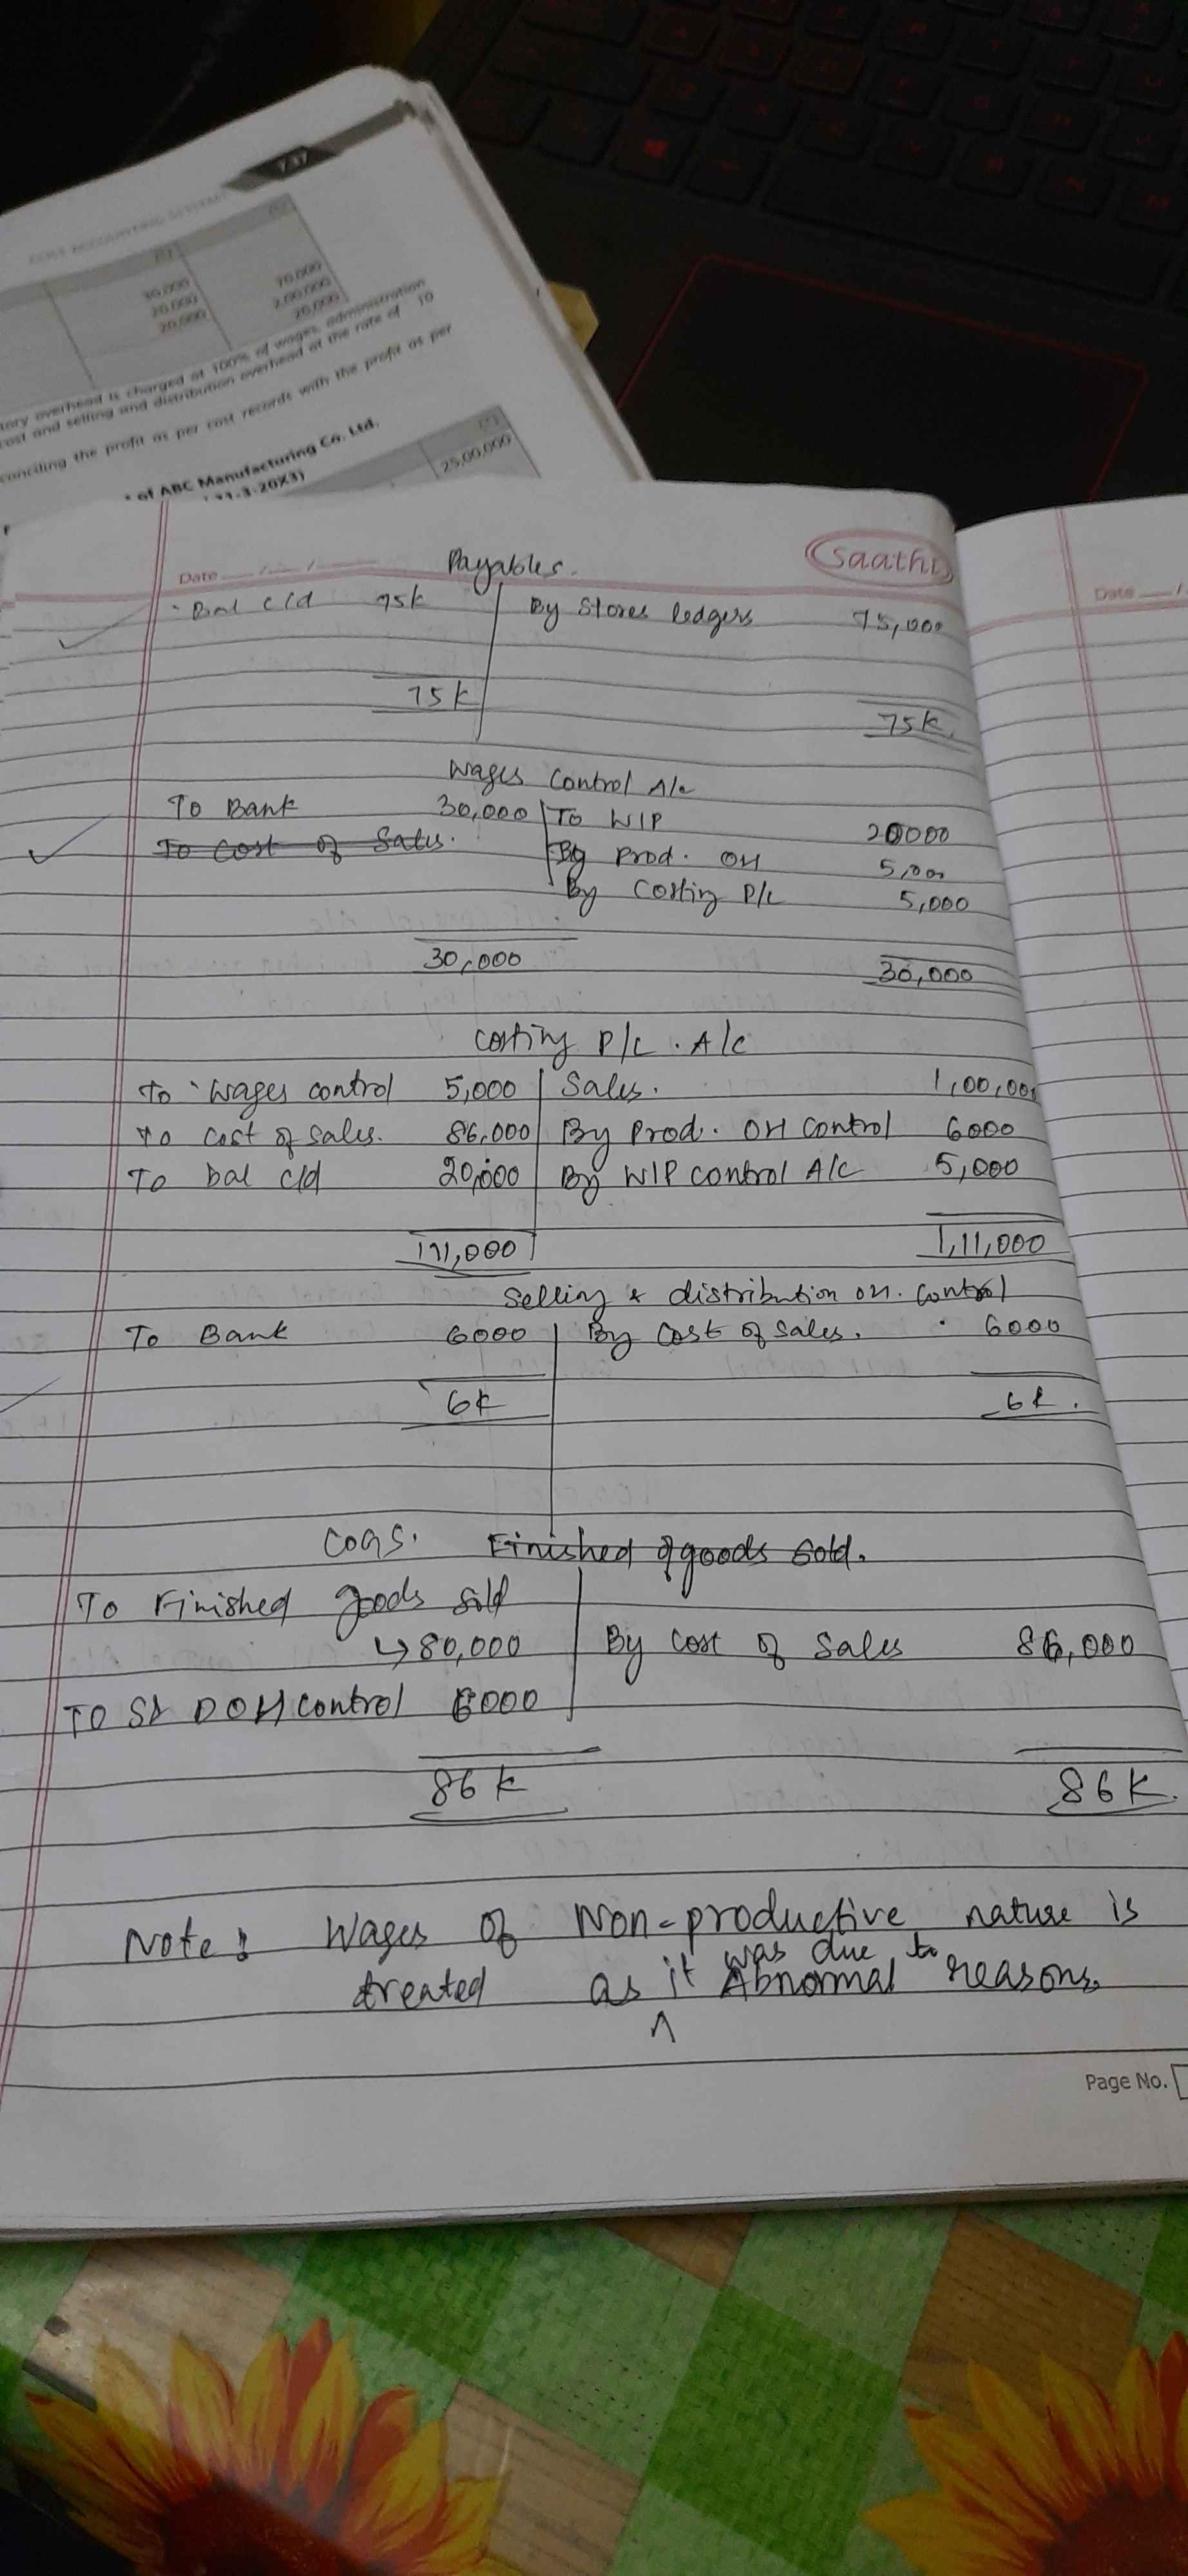 7.37
COST ACCOUNTING SYSTEMS
30,000 70,000
20,000 2,00,000
20,000 20,000
tory overhead is charged at 100% of wages, administration
cost and selling and distribution overhead at the rate of 10
conciling the profit as per cost records with the profit as per
of ABC Manufacturing Co. Ltd.
31-3-20X3)
25,00,000
Saathi
Date
Date
Payables.
Bal c/d 75k By Stores ledgers 75,000
75k 75k.
Wages Control A/c
To Bank 30,000 To WIP 20000
To Cost of Sales. By Prod. OH 5,000
By Costing P/L 5,000
30,000 30,000
Costing P/L . A/c
To Wages control 5,000 Sales. 1,00,000
To Cost of Sales. 86,000 By Prod. OH Control 6000
To bal c/d 20,000 By WIP control A/c 5,000
111,000 1,11,000
Selling & distribution OH. control
To Bank 6000 By Cost of Sales. 6000
6k 6k.
COGS. Finished of goods Sold.
To Finished goods sold
↳ 80,000 By Cost of Sales 86,000
TO S& DOH control 6000
86k 86k.
Note: Wages of Non-productive nature is
treated as it was due to Abnormal reasons.
Page No.